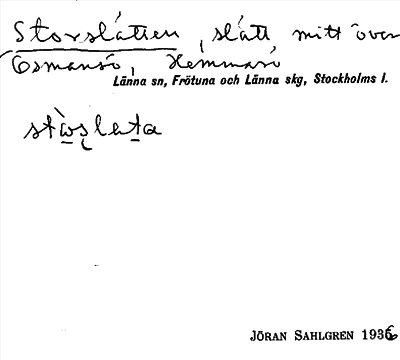 Storslåtten, slått mitt över
Esmansö, Hemmarö
Länna sn, Frötuna och Länna skg, Stockholms l.
JÖRAN SAHLGREN 1936